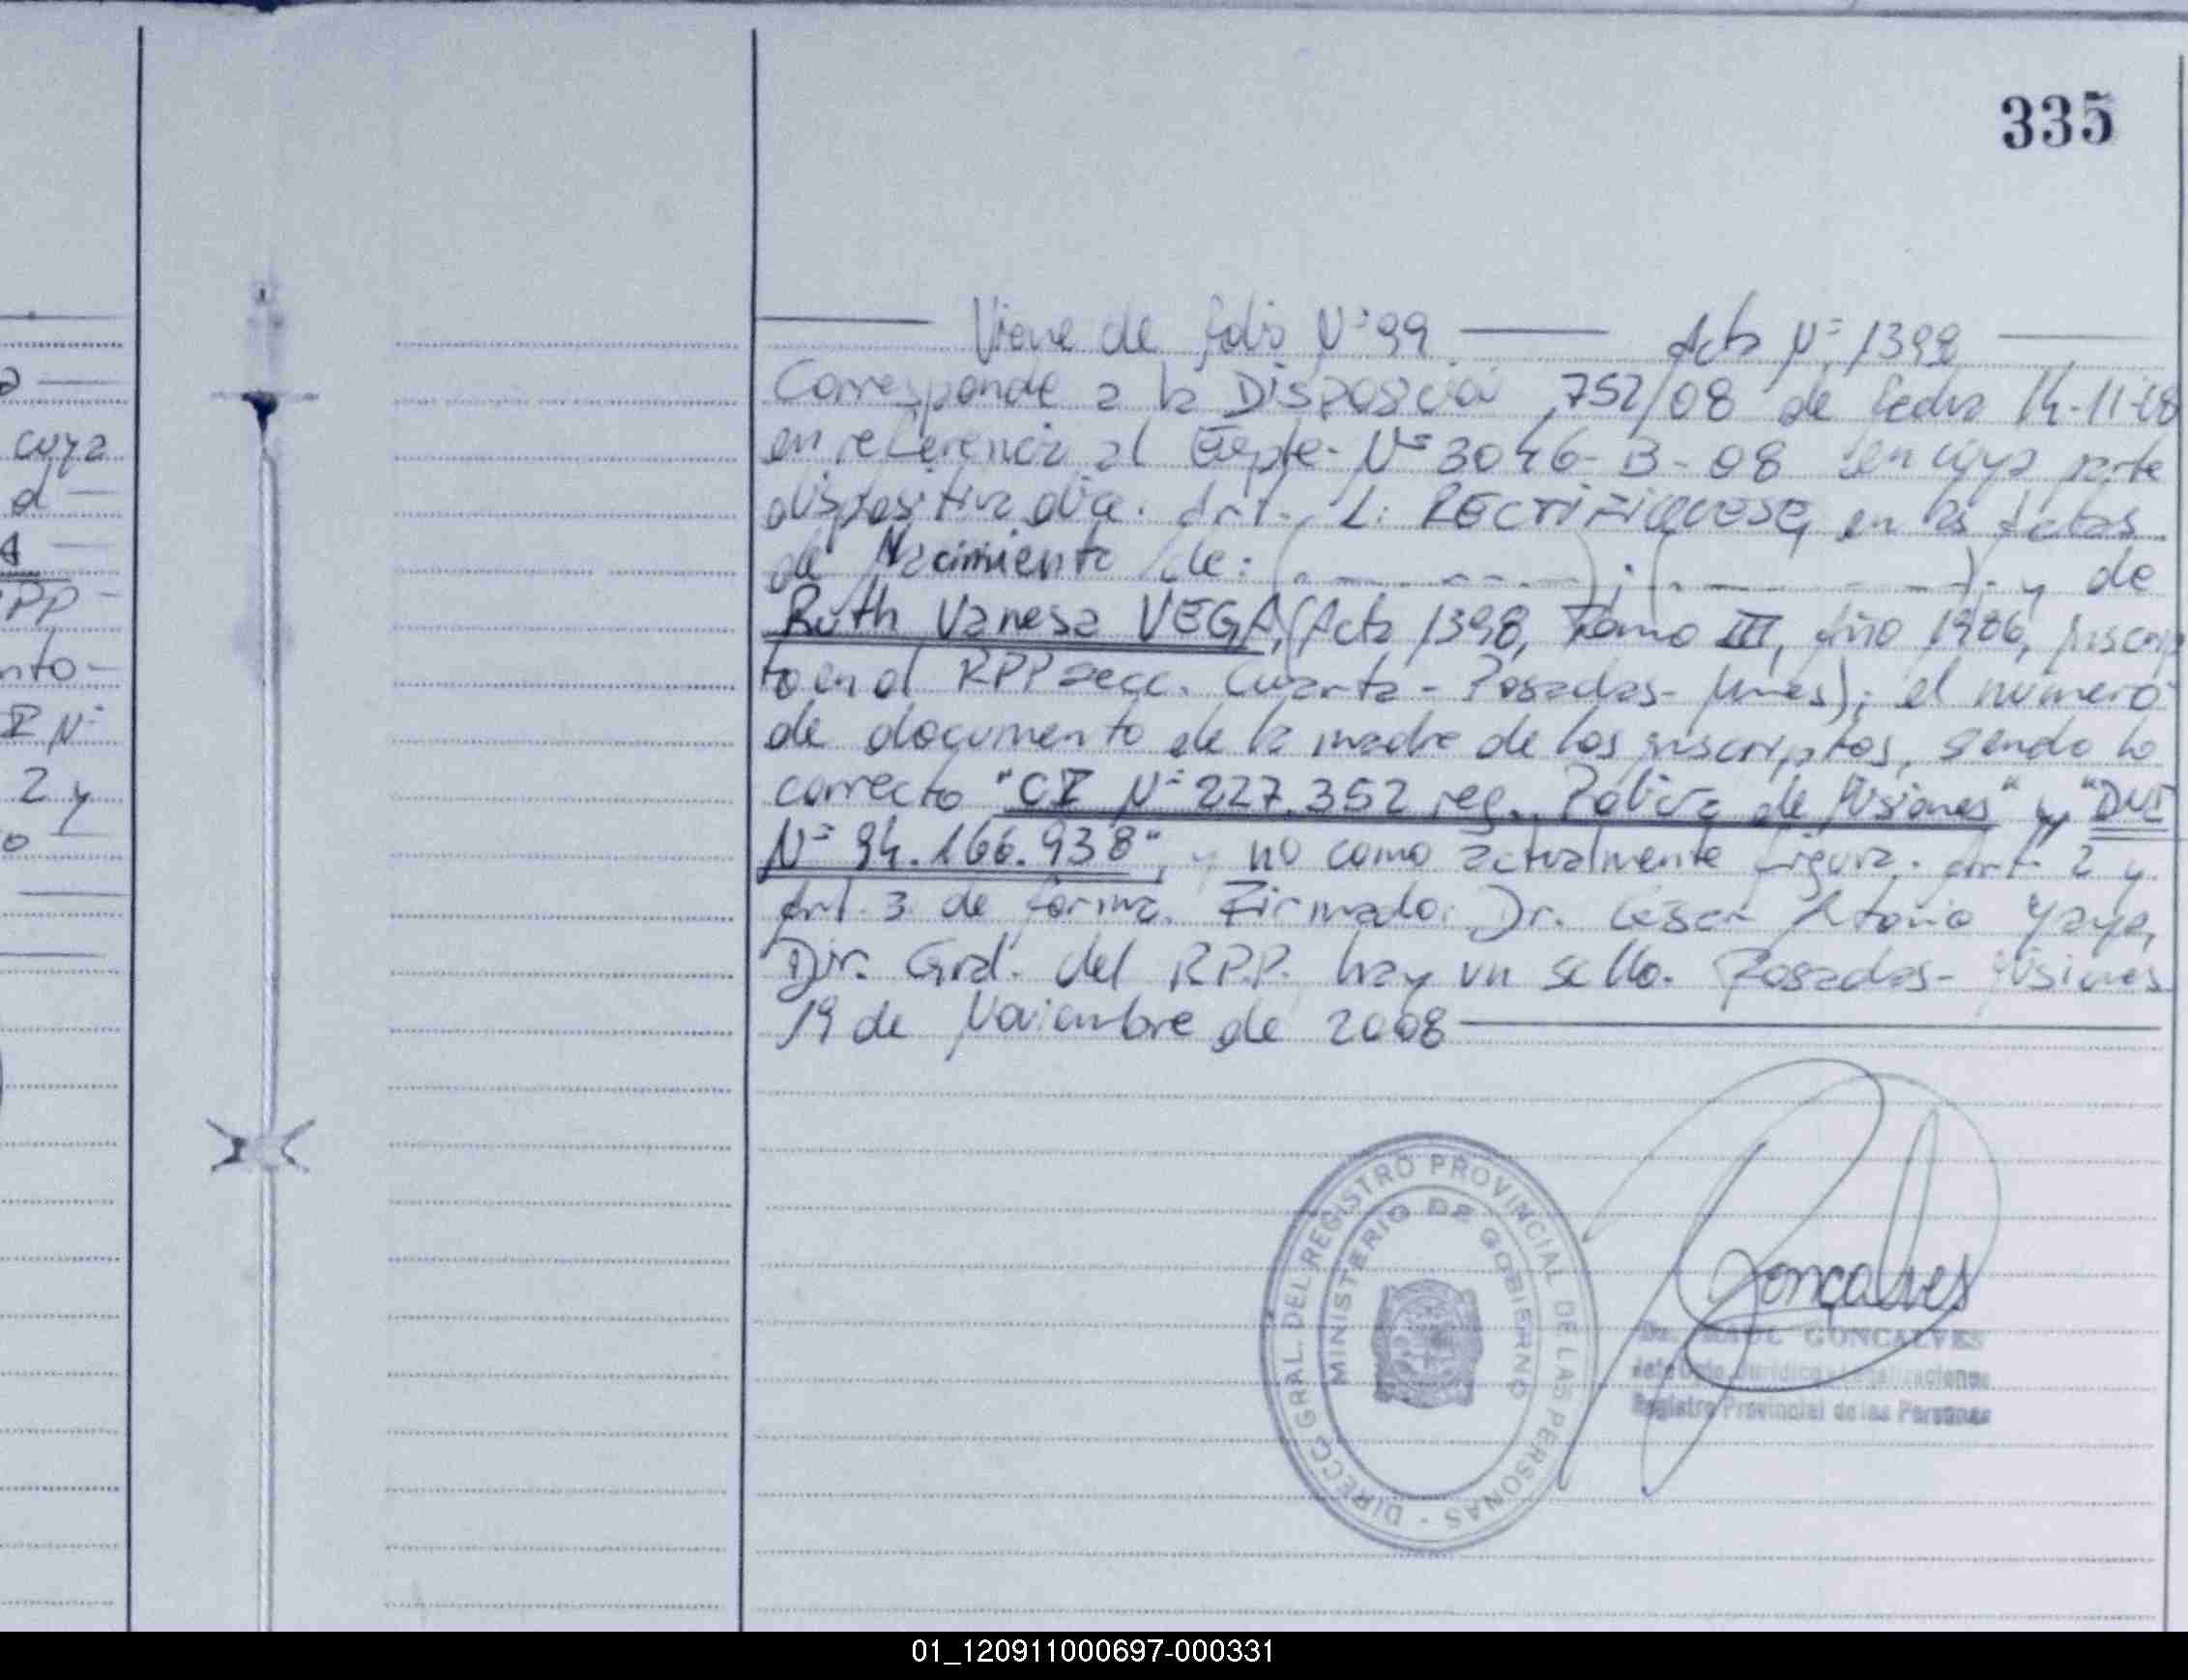 335
Viene de folio Nº 99 Acta Nº 1398
Corresponde a la Disposición 752/08 de fecha 14-11-08
en referencia al Expte- Nº 3046-B-08 en cuya parte
dispositiva dice. Art. 1: RECTIFIQUESE, en las actas
de Nacimiento de: ( ) ; ( ). y de
Ruth Vanesa VEGA, (Acta 1398, Tomo III, Año 1986, Inscrip
to en el RPP secc. Cuarta - Posadas- Mnes); el número
de documento de la madre de los inscriptos, siendo lo
correcto "CI Nº 227.352 reg. Policía de Misiones" y "DNI
Nº 94.166.938", y no como actualmente figura. Art 2 y
Art. 3 de forma. Firmado: Dr. César Atonio Yaya,
Dir. Gral. del R.P.P. hay un sello. Posadas- Misiones
19 de Noviembre de 2008
DIRECC. GRAL. DEL REGISTRO PROVINCIAL DE LAS PERSONAS -
MINISTERIO DE GOBIERNO
Gonçalves
Dr. RAUL GONCALVES
Jefe Dpto. Jurídico y Legalizaciones
Registro Provincial de las Personas
cuya
d
RPP
nto-
I Nº
2 y
o
01_120911000697-000331